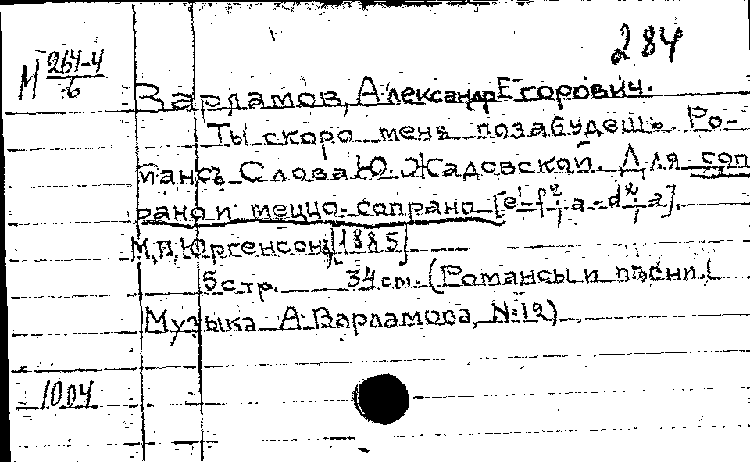 284
М 264-4
6
Варламов, Александр Егорович.
Ты скоро меня позабудешь. Ро-
мансъ. Слова Ю. Жадовской. Для соп
рано и меццо-сопрано
М., П. Юргенсон, [1885]
5 стр. 34 см. (Романсы и пѣсни. (
Музыка А. Варламова, №12)
1004